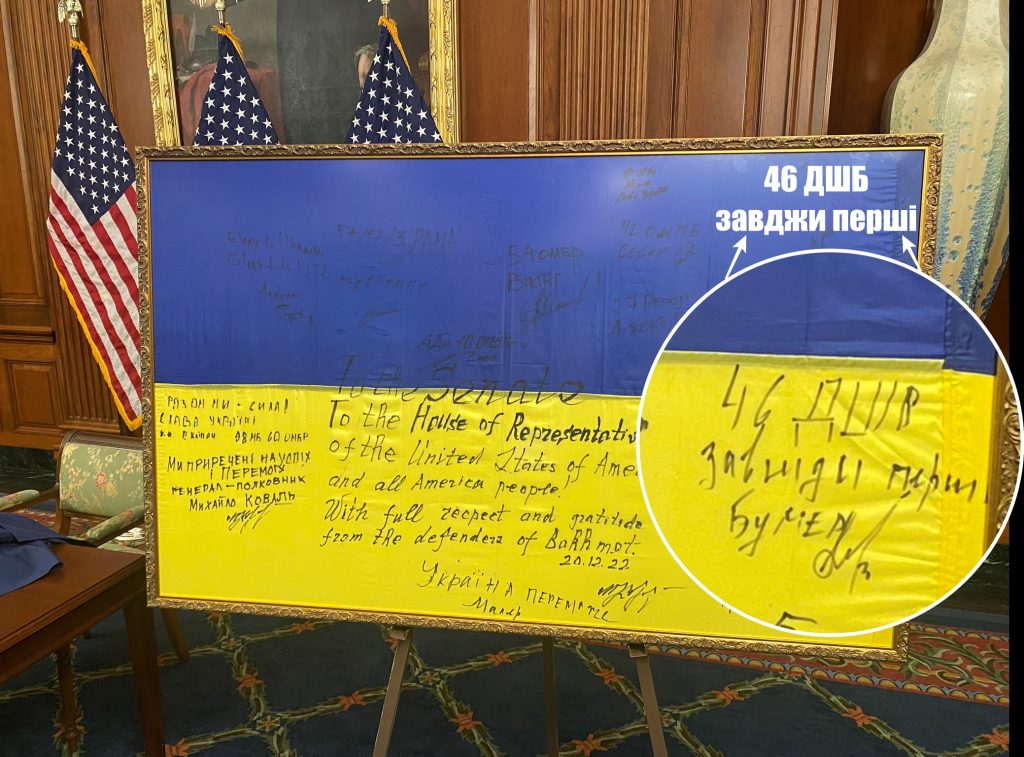 46 ДШБ
завджи перші
Glory to Ukraine
Glory to USA
Andrew
57/17/3.РАМА
54 ОМБР
ВІКІНГ
42 ОМПБ
10 ОМШБр
To the Senate
To the House of Representativ
of the United States of Ame
and all America people,
With full recpect and gratitude
from the defenders of Bakhmot.
20.12.22.
Україна переможе
Маляр
РАЗОМ МИ - СИЛА!
СЛАВА УКРАЇНІ
98 МБ 60 ОМБР
МИ ПРИРЕЧЕНІ НА УСПІХ
І ПЕРЕМОГУ
ГЕНЕРАЛ-ПОЛКОВНИК
МИХАЙЛО КОВАЛЬ
46 ДШБ
завжди перші